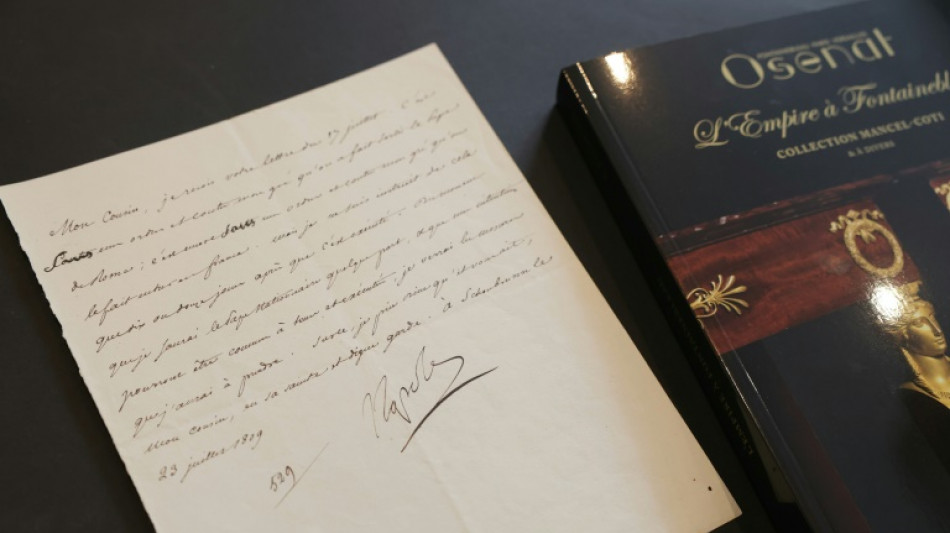 Mon Cousin, je reçois votre lettre du 17 juillet. C'est
sans mon ordre et contre mon gré qu'on a fait sortir le Pape
de Rome; c'est encore sans mon ordre et contre mon gré qu'on
le fait entrer en france. mais je ne suis instruit de cela
que dix ou douze jours après que c'est exécuté. Du moment
que je saurai le Pape stationnaire quelque part, et que mes intentions
pourront être connues à temps et exécutées, je verrai les mesures
que j'aurai à prendre. Sur ce je prie Dieu qu'il vous ait,
mon Cousin, en sa sainte et digne garde. à Schönbrunn le
23 juillet 1809
529
Napole
Osenat
L'Empire à Fontainebl
COLLECTION MANCEL-COTI
& À DIVERS